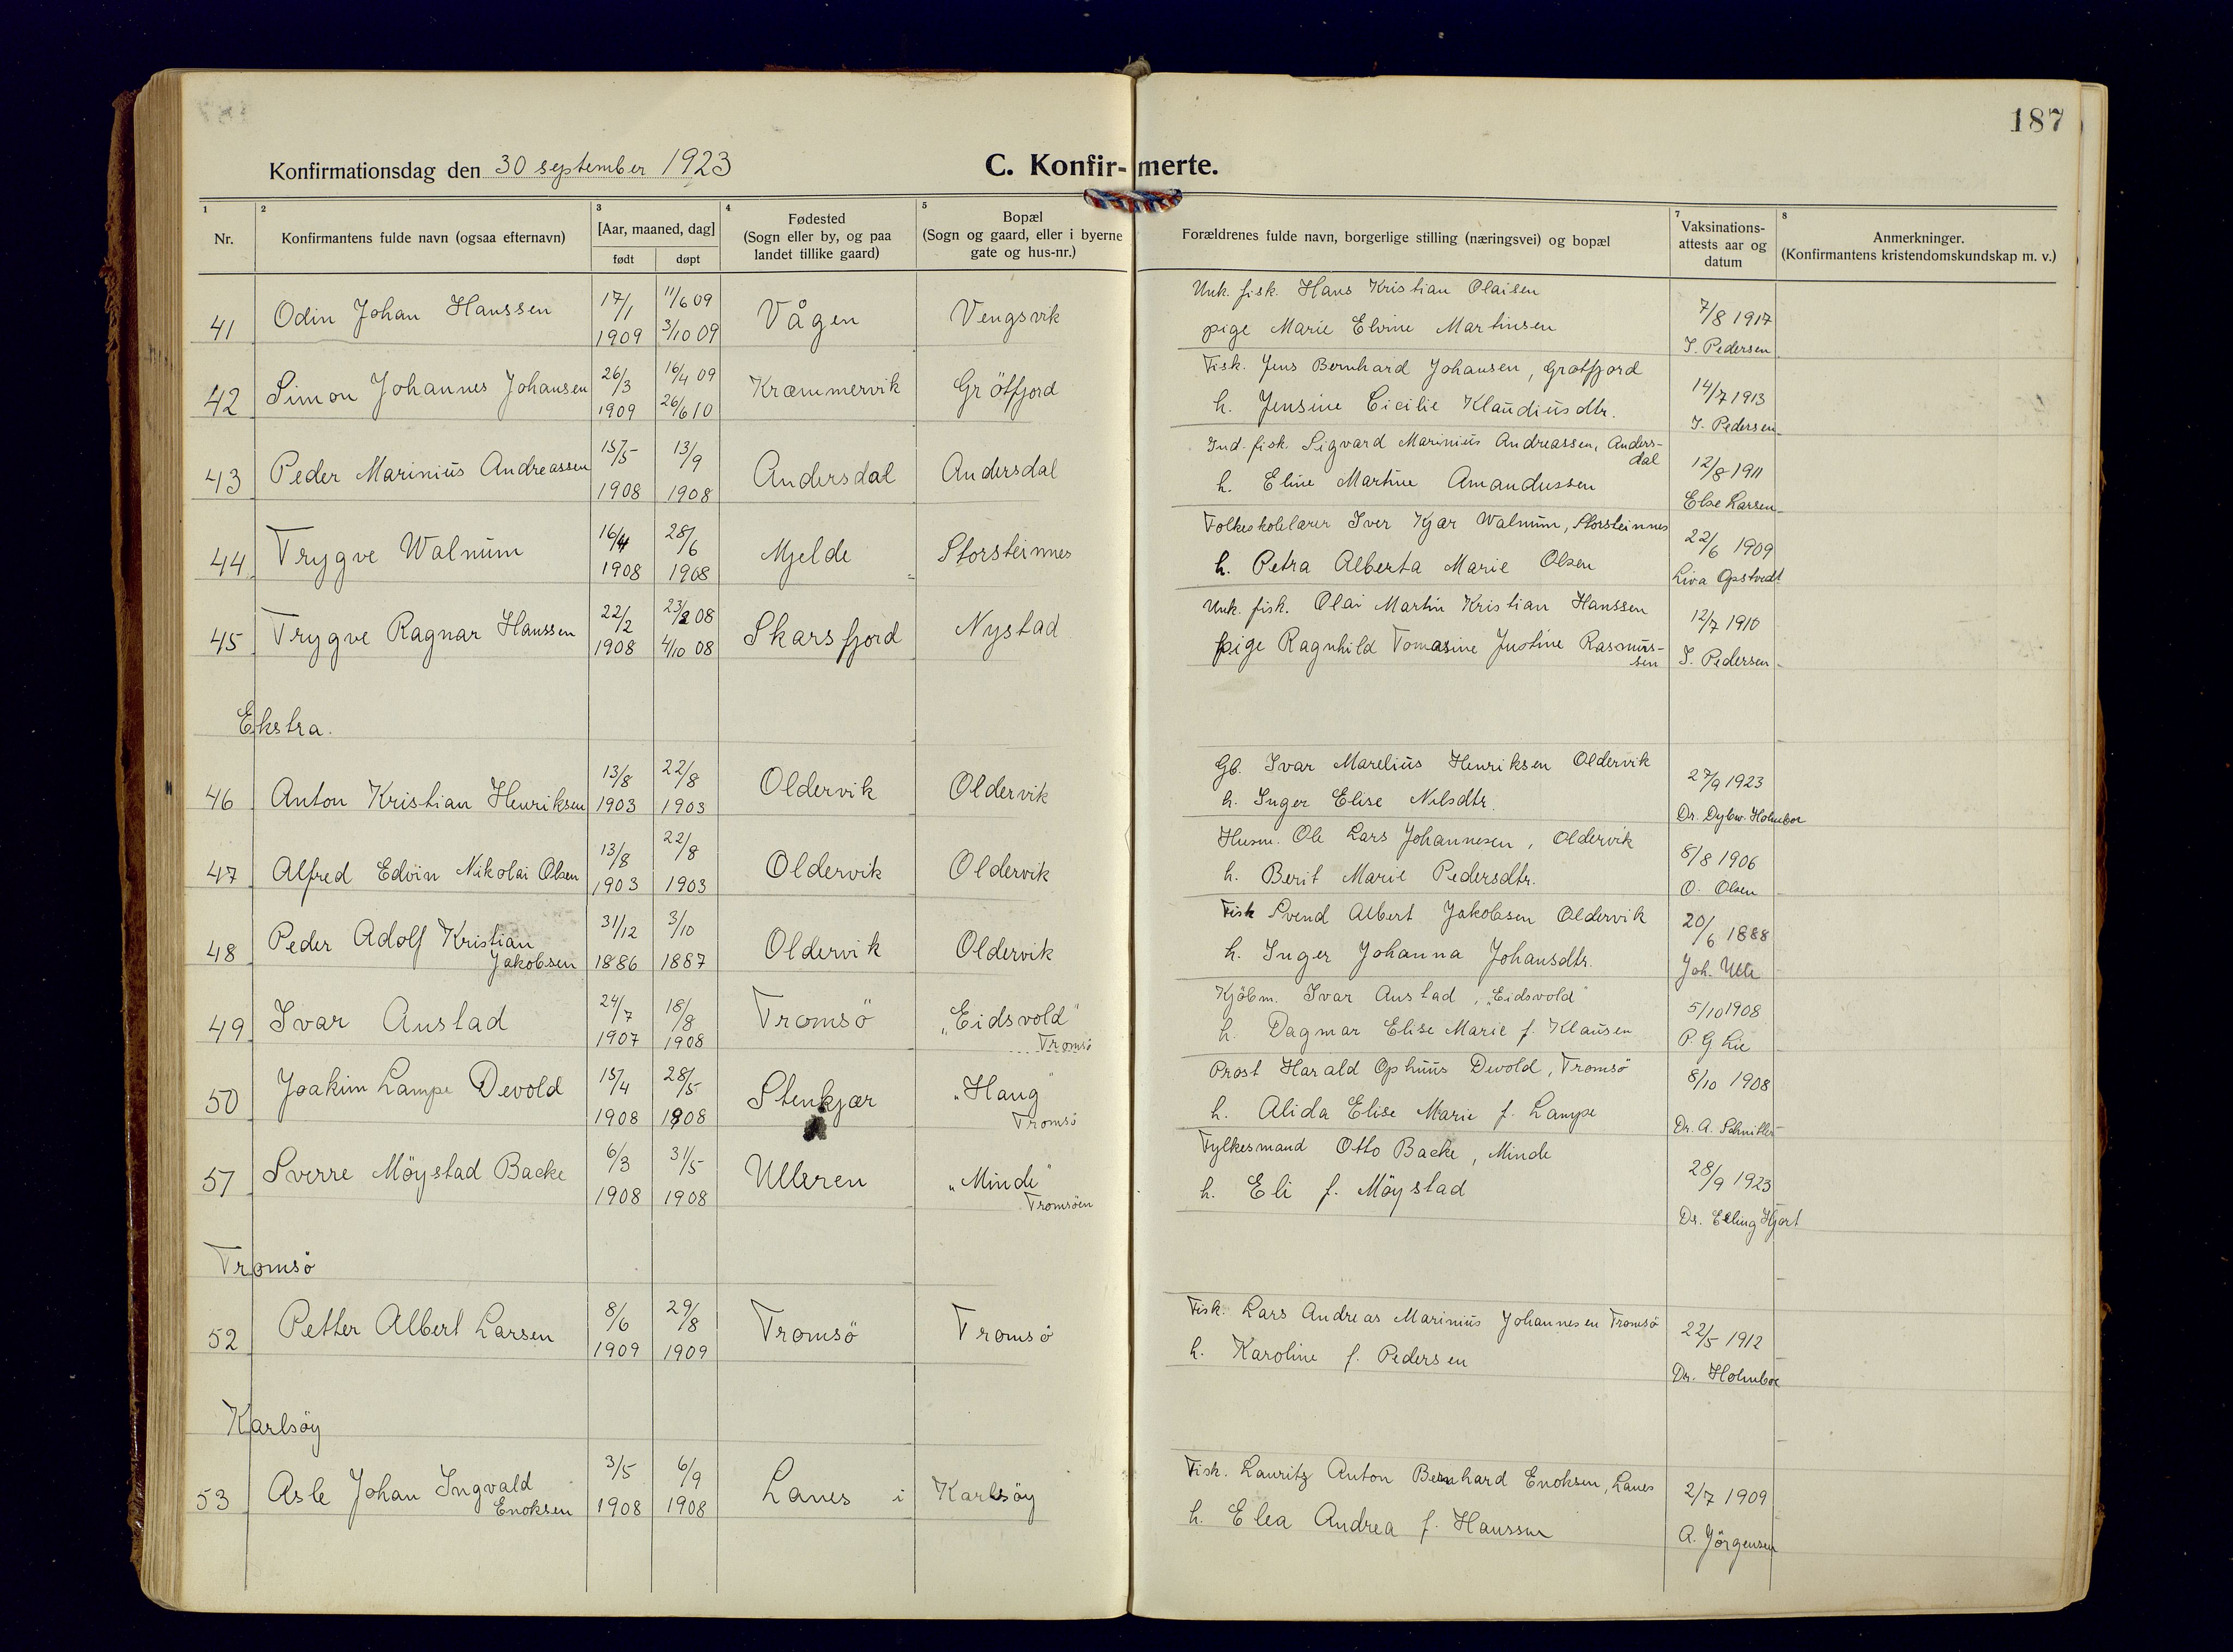 187
Konfirmationsdag den 30 september 1923
C. Konfir-merte.
1 2 3 4 5 7 8
Nr.
Konfirmantens fulde navn (ogsaa efternavn)
[Aar, maaned, dag]
født døpt
Fødested
(Sogn eller by, og paa
landet tillike gaard)
Bopæl
(Sogn og gaard, eller i byerne
gate og hus-nr.)
Forældrenes fulde navn, borgerlige stilling (næringsvei) og bopæl
Vaksinations-
attests aar og
datum
Anmerkninger.
(Konfirmantens kristendomskundskap m. v.)
41 Odin Johan Hanssen 17/1 1909 11/6 09 3/10 09 Vågen Vengsvik
Unk. fisk. Hans Kristian Olaisen
pige Marie Elvine Martinsen
7/8 1917
I. Pedersen
42 Simon Johannes Johansen 26/3 1909 16/4 09 26/6 10 Kræmmervik Grötfjord
Fisk. Jens Bernhard Johansen, Grøtfjord
h. Jensine Cicilie Klaudiusdtr.
14/7 1913
I. Pedersen
43 Peder Marinius Andreassen 15/5 1908 13/9 1908 Andersdal Andersdal
Ind. fisk. Sigvard Marinius Andreassen, Anders-
dal
h. Eline Martine Amandussen
12/8 1911
Else Larsen
44 Trygve Walnum 16/4 1908 28/6 1908 Mjelde Storsteinnes
Folkeskolelærer Iver Kjær Walnum, Storsteinnes
h. Petra Alberta Marie Olsen
22/6 1909
Liva Opstvedt
45 Trygve Ragnar Hanssen 22/2 1908 23/2 08 4/10 08 Skarsfjord Nystad
Unk. fisk. Olai Martin Kristian Hanssen
pige Ragnhild Tomasine Justine Rasmus-
sen
12/7 1910
I. Pedersen
Ekstra.
46 Anton Kristian Henriksen 13/8 1903 22/8 1903 Oldervik Oldervik
Gb. Ivar Marelius Henriksen Oldervik
h. Inger Elise Nilsdtr.
27/9 1923
Dr. Dybw. Holmboe
47 Alfred Edvin Nikolai Olsen 13/8 1903 22/8 1903 Oldervik Oldervik
Husm. Ole Lars Johannesen, Oldervik
h. Berit Marie Pedersdtr.
8/8 1906
O. Olsen
48 Peder Adolf Kristian
Jakobsen 31/12 1886 3/10 1887 Oldervik Oldervik
Fisk Svend Albert Jakobsen Oldervik
h. Inger Johanna Johansdtr.
20/6 1888
Joh.
49 Ivar Austad 24/7 1907 18/8 1908 Tromsö „Eidsvold"
Tromsö
Kjöbm. Ivar Austad, „Eidsvold"
h. Dagmar Elise Marie f. Klausen
5/10 1908
P. G Lie
50 Joakim Lampe Devold 15/4 1908 28/5 1908 Stenkjær „Haug"
Tromsö
Prost Harald Ophuus Devold, Tromsö
h. Alida Elise Marie f. Lampe
8/10 1908
Dr. A. Schnitler
51 Sverre Möystad Backe 6/3 1908 31/5 1908 Ulleren „Minde"
Tromsöen
Fylkesmand Otto Backe, Minde
h. Eli f. Möystad
28/9 1923
Dr. Elling Hjort
Tromsö
52 Petter Albert Larsen 8/6 1909 29/8 1909 Tromsö Tromsö
Fisk. Lars Andreas Marinius Johannesen Tromsö
h. Karoline f. Pedersen
22/5 1912
Dr. Holmboe
Karlsöy
53 Asle Johan Ingvald
Enoksen 3/5 1908 6/9 1908 Lanes i Karlsöy
Fisk. Lauritz Anton Bernhard Enoksen, Lanes
h. Elea Andrea f. Hanssen
2/7 1909
A. Jörgensen